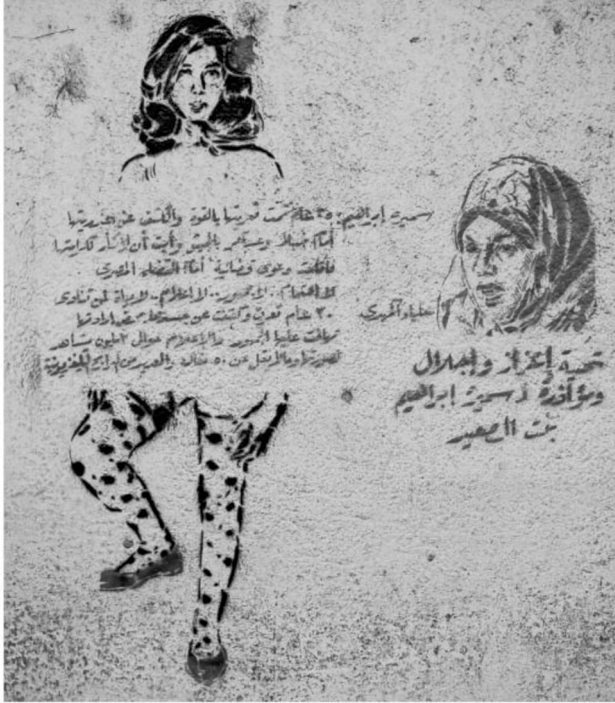 سميرة إبراهيم، ٢٥ عام تمت تعريتها بالقوة والكشف عن عذريتها
أمام ضباط وعساكر بالجيش وأبت أن لا تثأر لكرامتها
فأقامت دعوى قضائية أمام القضاء المصري
لا اهتمام .. لا جمهور .. لا إعلام .. لا حياة لمن تنادي
علياء المهدي
٢٠ عام تعرت وكشفت عن جسدها بمحض إرادتها
تهافت عليها الجمهور والإعلام حوالي ٣ مليون مشاهد
لصورتها وما لا يقل عن ٥٠ مقال والعديد من البرامج التلفزيونية
تحية إعزاز وإجلال
ومؤازرة لسميرة إبراهيم
بنت الصعيد